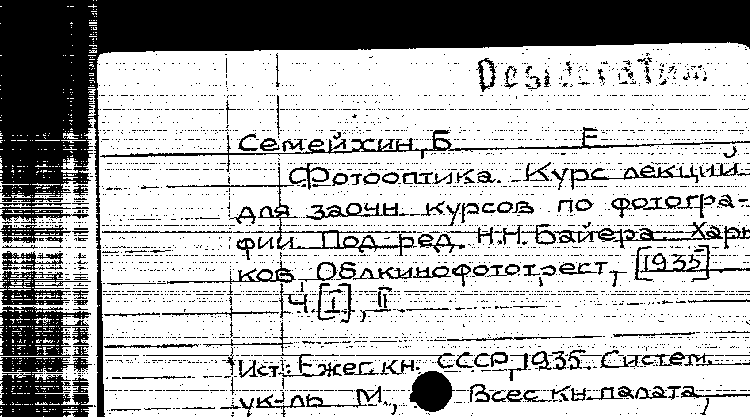 Desideratum
Семейхин, Б Е
Фотооптика. Курс лекций
для заочн. курсов по фотогра-
фии. Под ред. Н.Н. Байера. Харь
ков, Облкинофототрест, [1935]
Ч. [I], II
Ист.: Ежег. кн. СССР, 1935. Систем.
ук-ль М., Всес. кн. палата,